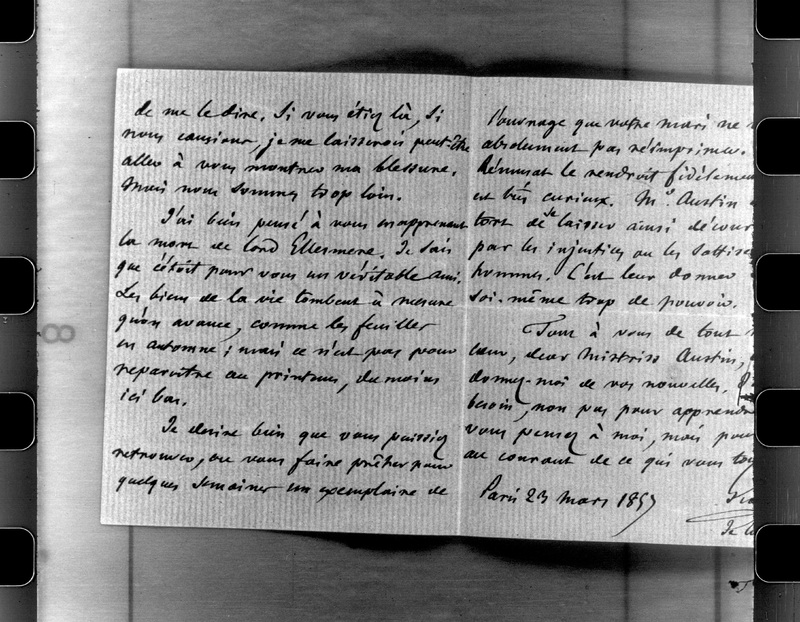 de me le dire. Si vous étiez là, si
nous causions, je me laisserois peut-être
aller à vous montrer ma blessure.
Mais nous sommes trop loin.
J'ai bien pensé à vous en apprenant
la mort de lord Ellesmere. Je sais
que c'étoit pour vous un véritable ami.
Les biens de la vie tombent à mesure
qu'on avance, comme les feuilles
en automne ; mais ce n'est pas pour
reparoître au printems, du moins
ici bas.
Je desire bien que vous puissiez
retrouver, ou vous faire prêter pour
quelques semaines un exemplaire de
l'ouvrage que votre mari ne
absolument pas réimprimer.
Rémusat le rendroit fidèlement
est très curieux. Mr. Austin
tort de se laisser ainsi décour
par les injustices ou les sottises
hommes. C'est leur donner
soi-même trop de pouvoir.
Tout à vous de tout
cœur, dear Mistriss Austin,
donnez-moi de vos nouvelles.
besoin, non pas pour apprendre
vous pensez à moi, mais pour
au courant de ce qui vous to
Paris 23 mars 1857
8